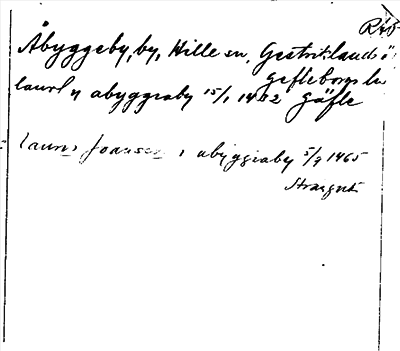 RAÄ
Åbyggeby, by, Hille sn, Gestriklands ö
Gefleborgs län
laurf y abyggiaby 15/1 1402 Gäfle
laurn Joanson i abyggiaby 5/7 1465